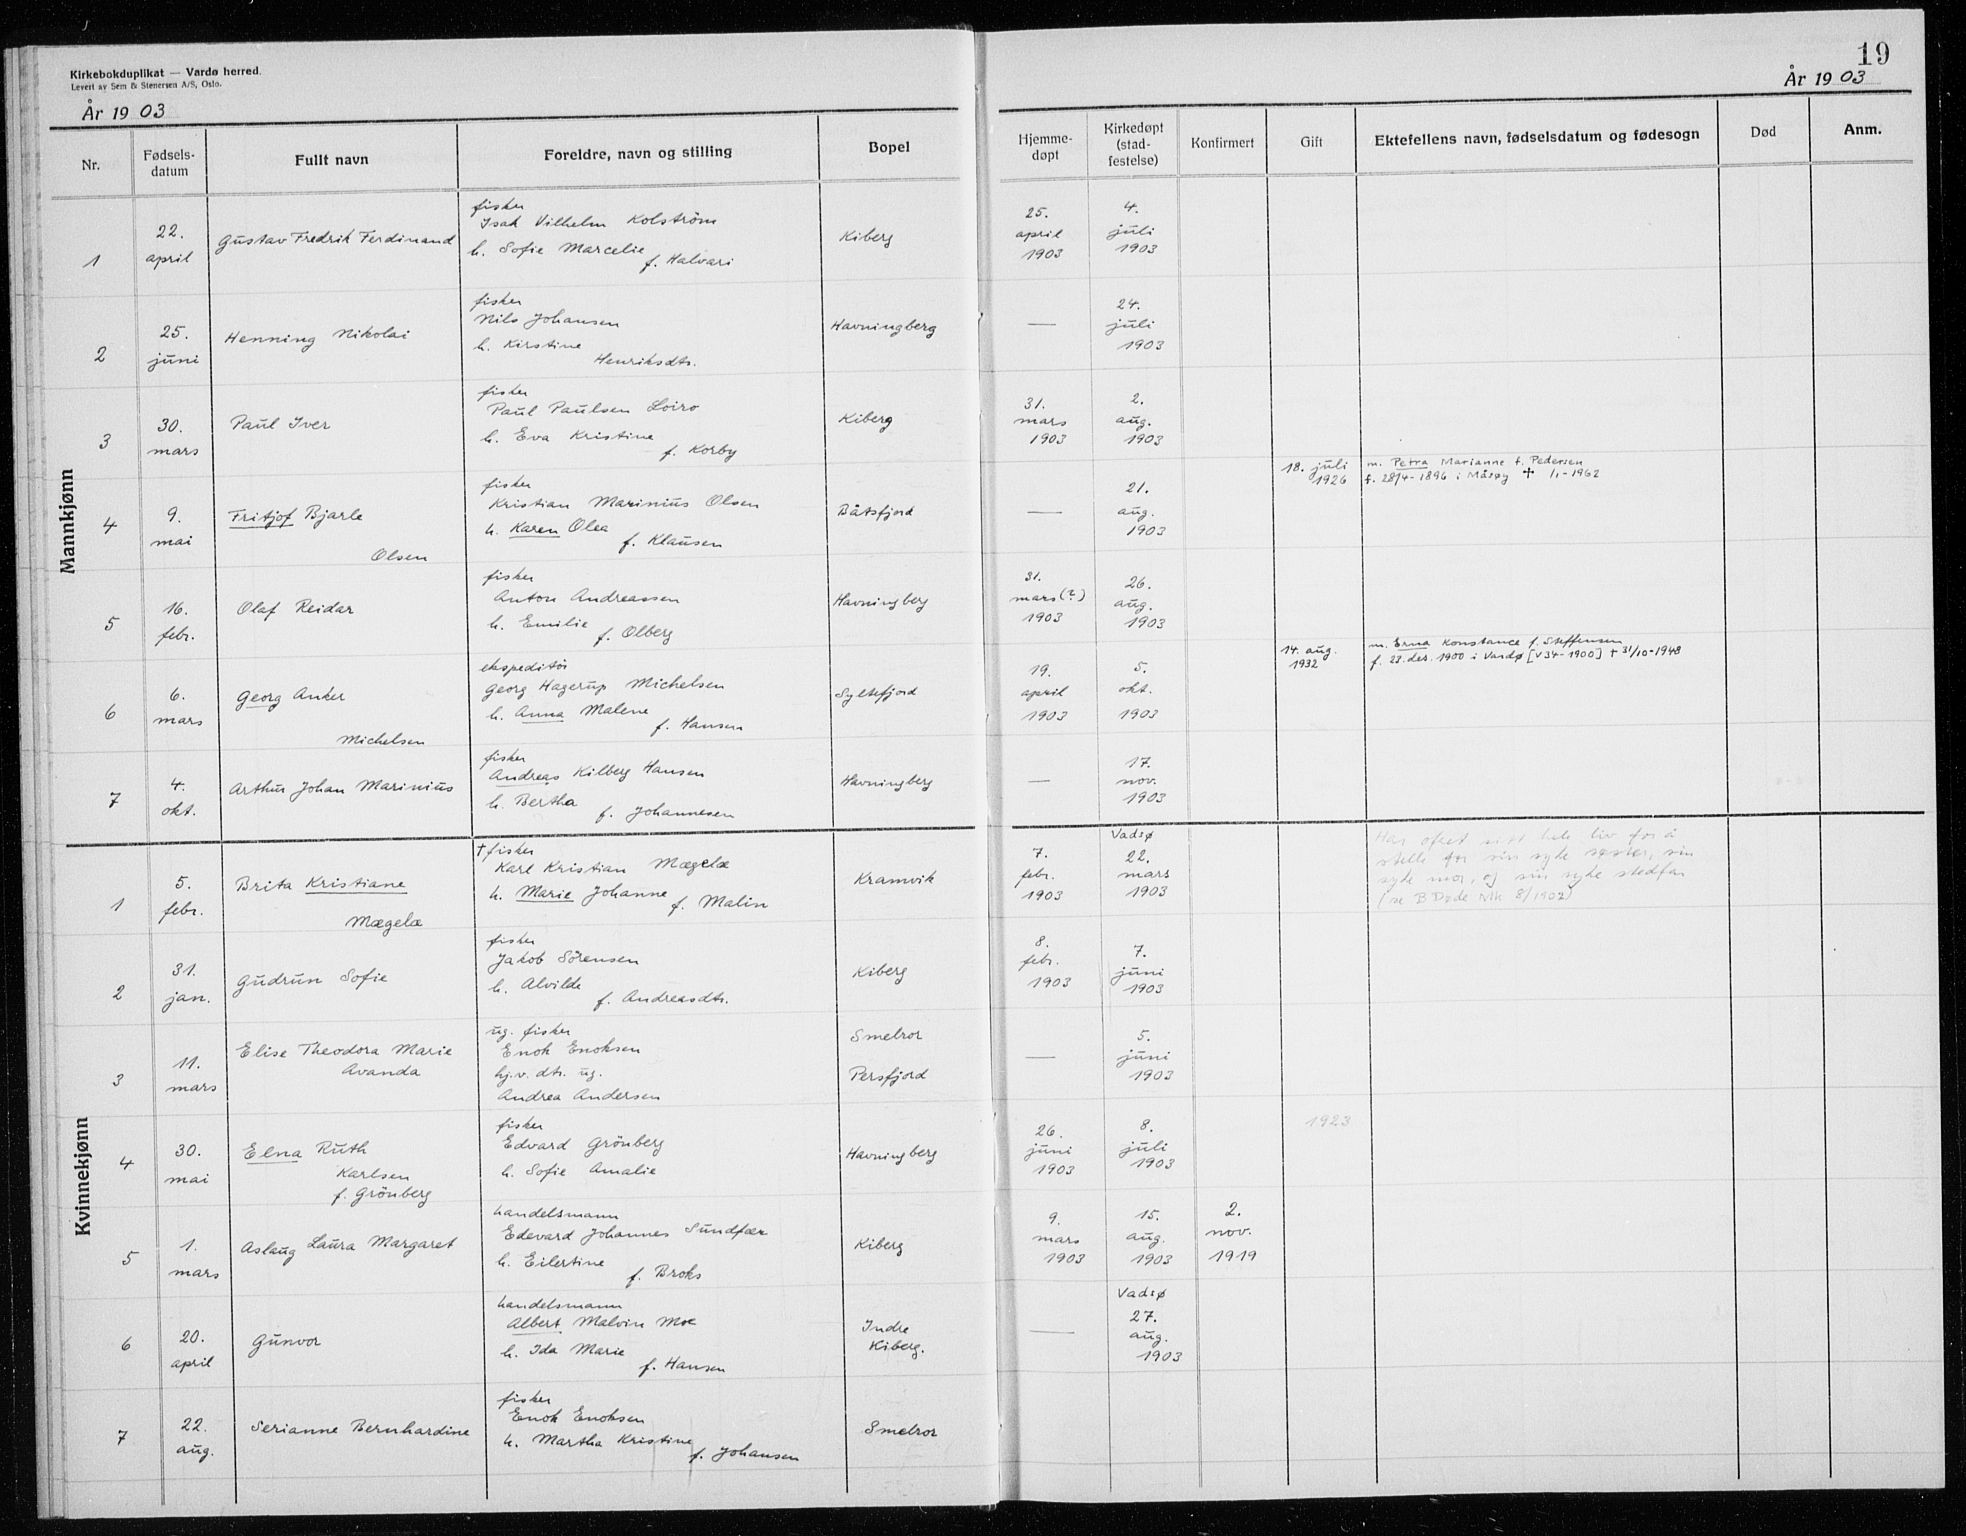 Kirkebokduplikat — Vardø herred.
Levert av Sem & Stenersen A/S, Oslo.
År 1903
19
År 1903
Nr.
Fødsels-
datum
Fullt navn
Foreldre, navn og stilling
Bopel
Hjemme-
døpt
Kirkedøpt
(stad-
festelse)
Konfirmert
Gift
Ektefellens navn, fødselsdatum og fødesogn
Død
Anm.
Mannkjønn
1
22.
april
Gustav Fredrik Ferdinand
fisker
Isak Vilhelm Kolström
h. Sofie Marcelie
f. Halvari
Kiberg
25.
april
1903
4.
juli
1903
2
25.
juni
Henning Nikolai
fisker
Nils Johansen
h. Kirstine
Henriksdtr.
Havningberg
—
24.
juli
1903
3
30.
mars
Paul Iver
fisker
Paul Paulsen Loiro
h. Eva Kristine
f. Korby
Kiberg
31.
mars
1903
2.
aug.
1903
4
9.
mai
Fritjof Bjarle
Olsen
fisker
Kristian Marinius Olsen
h. Karen Olea
f. Klausen
Båtsfjord
—
21.
aug.
1903
18. juli
1926
m. Petra Marianne f. Pedersen
f. 28/4-1896 i Måsøy † 1/1-1962
5
16.
febr.
Olaf Reidar
fisker
Anton Andreassen
h. Emilie
f. Olberg
Havningberg
31.
mars(?)
1903
26.
aug.
1903
6
6.
mars
Georg Anker
Michelsen
ekspeditör
Georg Hagerup Michelsen
h. Anna Malene
f. Hansen
Syltefjord
19.
april
1903
5.
okt.
1903
14. aug.
1932
m. Erna Konstance f. Steffensen
f. 23. des. 1900 i Vardø [V 34-1900] † 31/10-1948
7
4.
okt.
Arthur Johan Marinius
fisker
Andreas Kilberg Hansen
h. Bertha
f. Johannesen
Havningberg
—
17.
nov.
1903
Kvinnekjønn
1
5.
febr.
Brita Kristiane
Mægelæ
† fisker
Karl Kristian Mægelæ
h. Marie Johanne
f. Malin
Kramvik
7.
febr.
1903
Vadsø
22.
mars
1903
Har ofret sitt hele liv for å
stelle for sin syke søster, sin
syke mor, og sin syke stedfar
(se B Døde Mk 8/1902)
2
31.
jan.
Gudrun Sofie
fisker
Jakob Sörensen
h. Alvilde
f. Andreasdtr.
Kiberg
8.
febr.
1903
7.
juni
1903
3
11.
mars
Elise Theodora Marie
Avanda
ug. fisker
Enok Enoksen
hj.v. dtr. ug.
Andrea Andersen
Smelror
Persfjord
—
5.
juni
1903
4
30.
mai
Elna Ruth
Karlsen
f. Grönberg
fisker
Edvard Grönberg
h. Sofie Amalie
Havningberg
26.
juni
1903
8.
juli
1903
1923
5
1.
mars
Aslaug Laura Margaret
handelsmann
Edevard Johannes Sundfær
h. Eilertine
f. Broks
Kiberg
9.
mars
1903
15.
aug.
1903
2.
nov.
1919
6
20.
april
Gunvor
handelsmann
Albert Malvin Moe
h. Ida Marie
f. Hansen
Indre
Kiberg.
—
Vadsø
27.
aug.
1903
7
22.
aug.
Serianne Bernhardine
fisker
Enok Enoksen
h. Martha Kristine
f. Johansen
Smelror